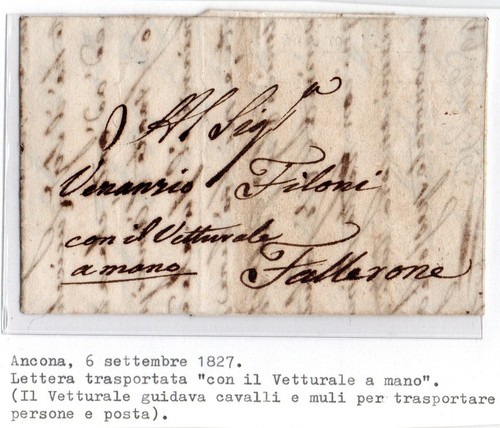 Al Sig.r
Venanzio Filoni
con il Vetturale
a mano
Fallerone
Ancona, 6 settembre 1827.
Lettera trasportata "con il Vetturale a mano".
(Il Vetturale guidava cavalli e muli per trasportare
persone e posta).